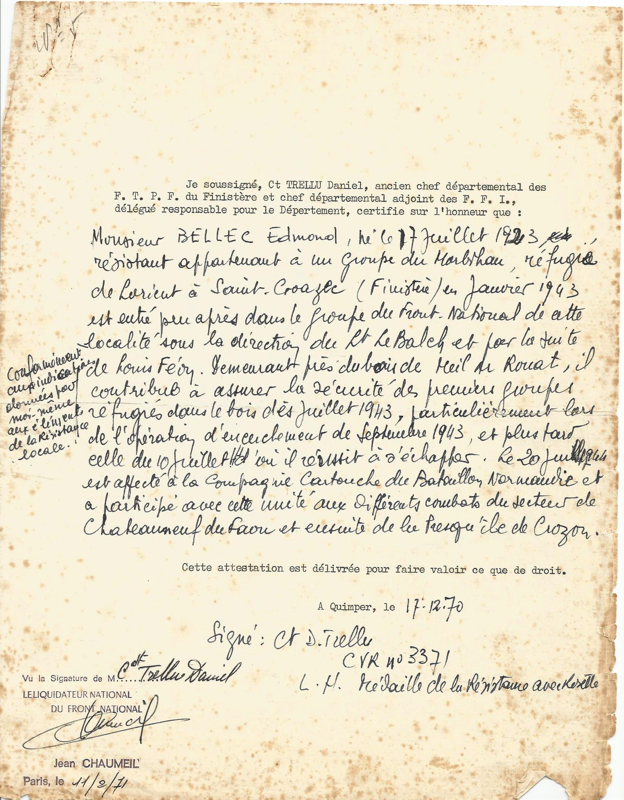 Je soussigné, Ct TRELLU Daniel, ancien chef départemental des
F. T. P. F. du Finistère et chef départemental adjoint des F. F. I.,
délégué responsable pour le Dépertement, certifie sur l'honneur que :
Monsieur BELLEC Edmond, né le 17 Juillet 1923
résistant appartenant à un groupe du Morbihan, réfugié
de Lorient à Saint-Goazec (Finistère) en Janvier 1943
est entré peu après dans le groupe du Front-National de cette
localité sous la direction du Lt Le Balch et par la suite
de Louis Féon. Demeurant près du bois de Meil Ar Rouat, il
contribué à assurer la sécurité des premiers groupes
réfugiés dans le bois dès Juillet 1943, particulièrement lors
de l'opération d'encerclement de Septembre 1943, et plus tard
celle du 10 Juillet d'où il réussit à s'échapper. Le 20 Juillet 1944
est affecté à la Compagnie Cartouche du Bataillon Normandie et
a participé avec cette unité aux différents combats du secteur de
Chateauneuf du Faou et ensuite de la Presqu'île de Crozon.
conformément
aux indications
données par
moi-même
aux éléments
de la Résistance
locale.
Cette attestation est délivrée pour faire valoir ce que de droit.
A Quimper, le 17.12.70
Signé : Ct D. Trellu
CVR no 3371
L. H. Médaille de la Résistance avec Rosette
Vu la Signature de M..... Cdt Trellu Daniel
LE LIQUIDATEUR NATIONAL
DU FRONT NATIONAL
Jean CHAUMEIL
Paris, le 11/2/71